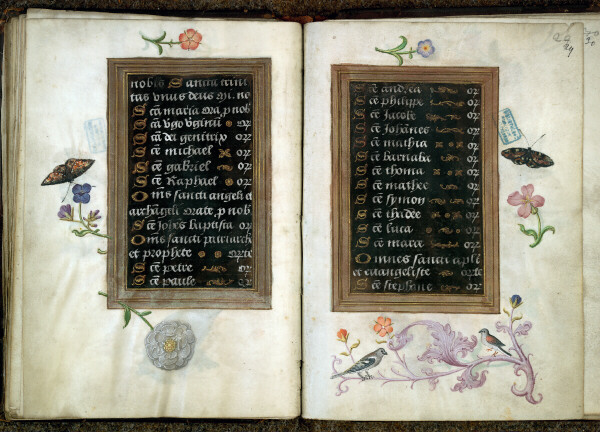 nobis Sancta trini
tas vnus deus mi. no
Scā maria ora p nob
Scā v̄go v̄ginū or
Scā dei genitrix or
Scē michael or
Scē gabriel or
Scē Raphael or
Om̄s sancti angeli et
archāgeli orate p nob
Scē Johēs baptista or
Om̄s sancti patriarch
et prophete orte
Scē petre or
Scē paule or
Scē andrea or
Scē philipe or
Scē Jacobe or
Scē Johānes or
Scē mathia or
Scē barnaba or
Scē thoma or
Scē mathee or
Scē symon or
Scē thadee or
Scē luca or
Scē marce or
Omnes sancti apli
et euangeliste orte
Scē stephane or
29